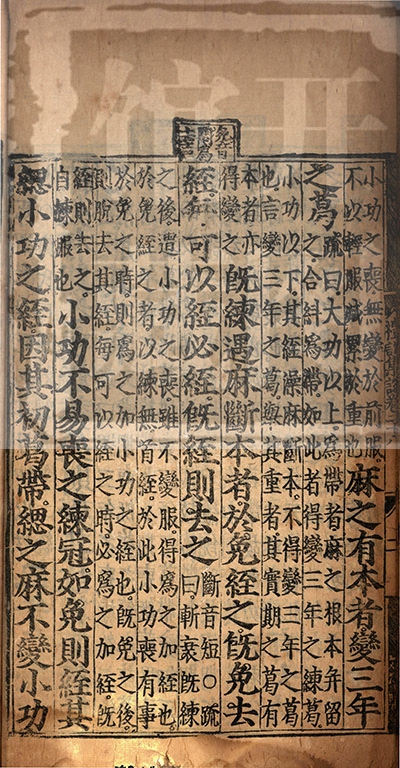 小功之喪無變於前服。
不以輕服減累於重也
麻之有本者變三年
之葛
疏曰。大功以上。爲帶者麻之根本并留
之。合紏爲帶。如此者得變三年之練葛。
小功以下。其絰澡麻斷本。不得變三年之葛
也。言變三年之葛。舉其重者。其實期之葛有
本者亦
得變之
既練遇麻斷本者於免絰之既免去
絰每可以絰必絰既絰則去之
斷音短○疏
曰。斬衰既練
之後。遭小功之喪。雖不變服。得爲之加絰也。
於免絰之者。以練無首絰。於此小功喪有事
於免之時。則爲之加小功之絰也。既免之後。
則脫去其絰。每可以絰之時。必爲之加絰。既
絰則去之。
自練服也
小功不易喪之練冠。如免則絰其
緦小功之絰。因其初葛帶。緦之麻不變小功